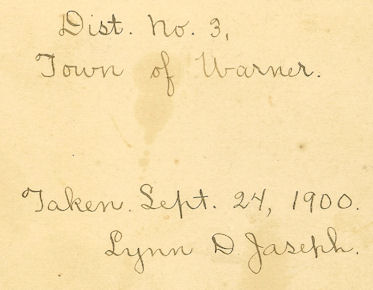 Dist. No. 3,
Town of Warner.
Taken. Sept. 24, 1900.
Lynn D. Jaseph.